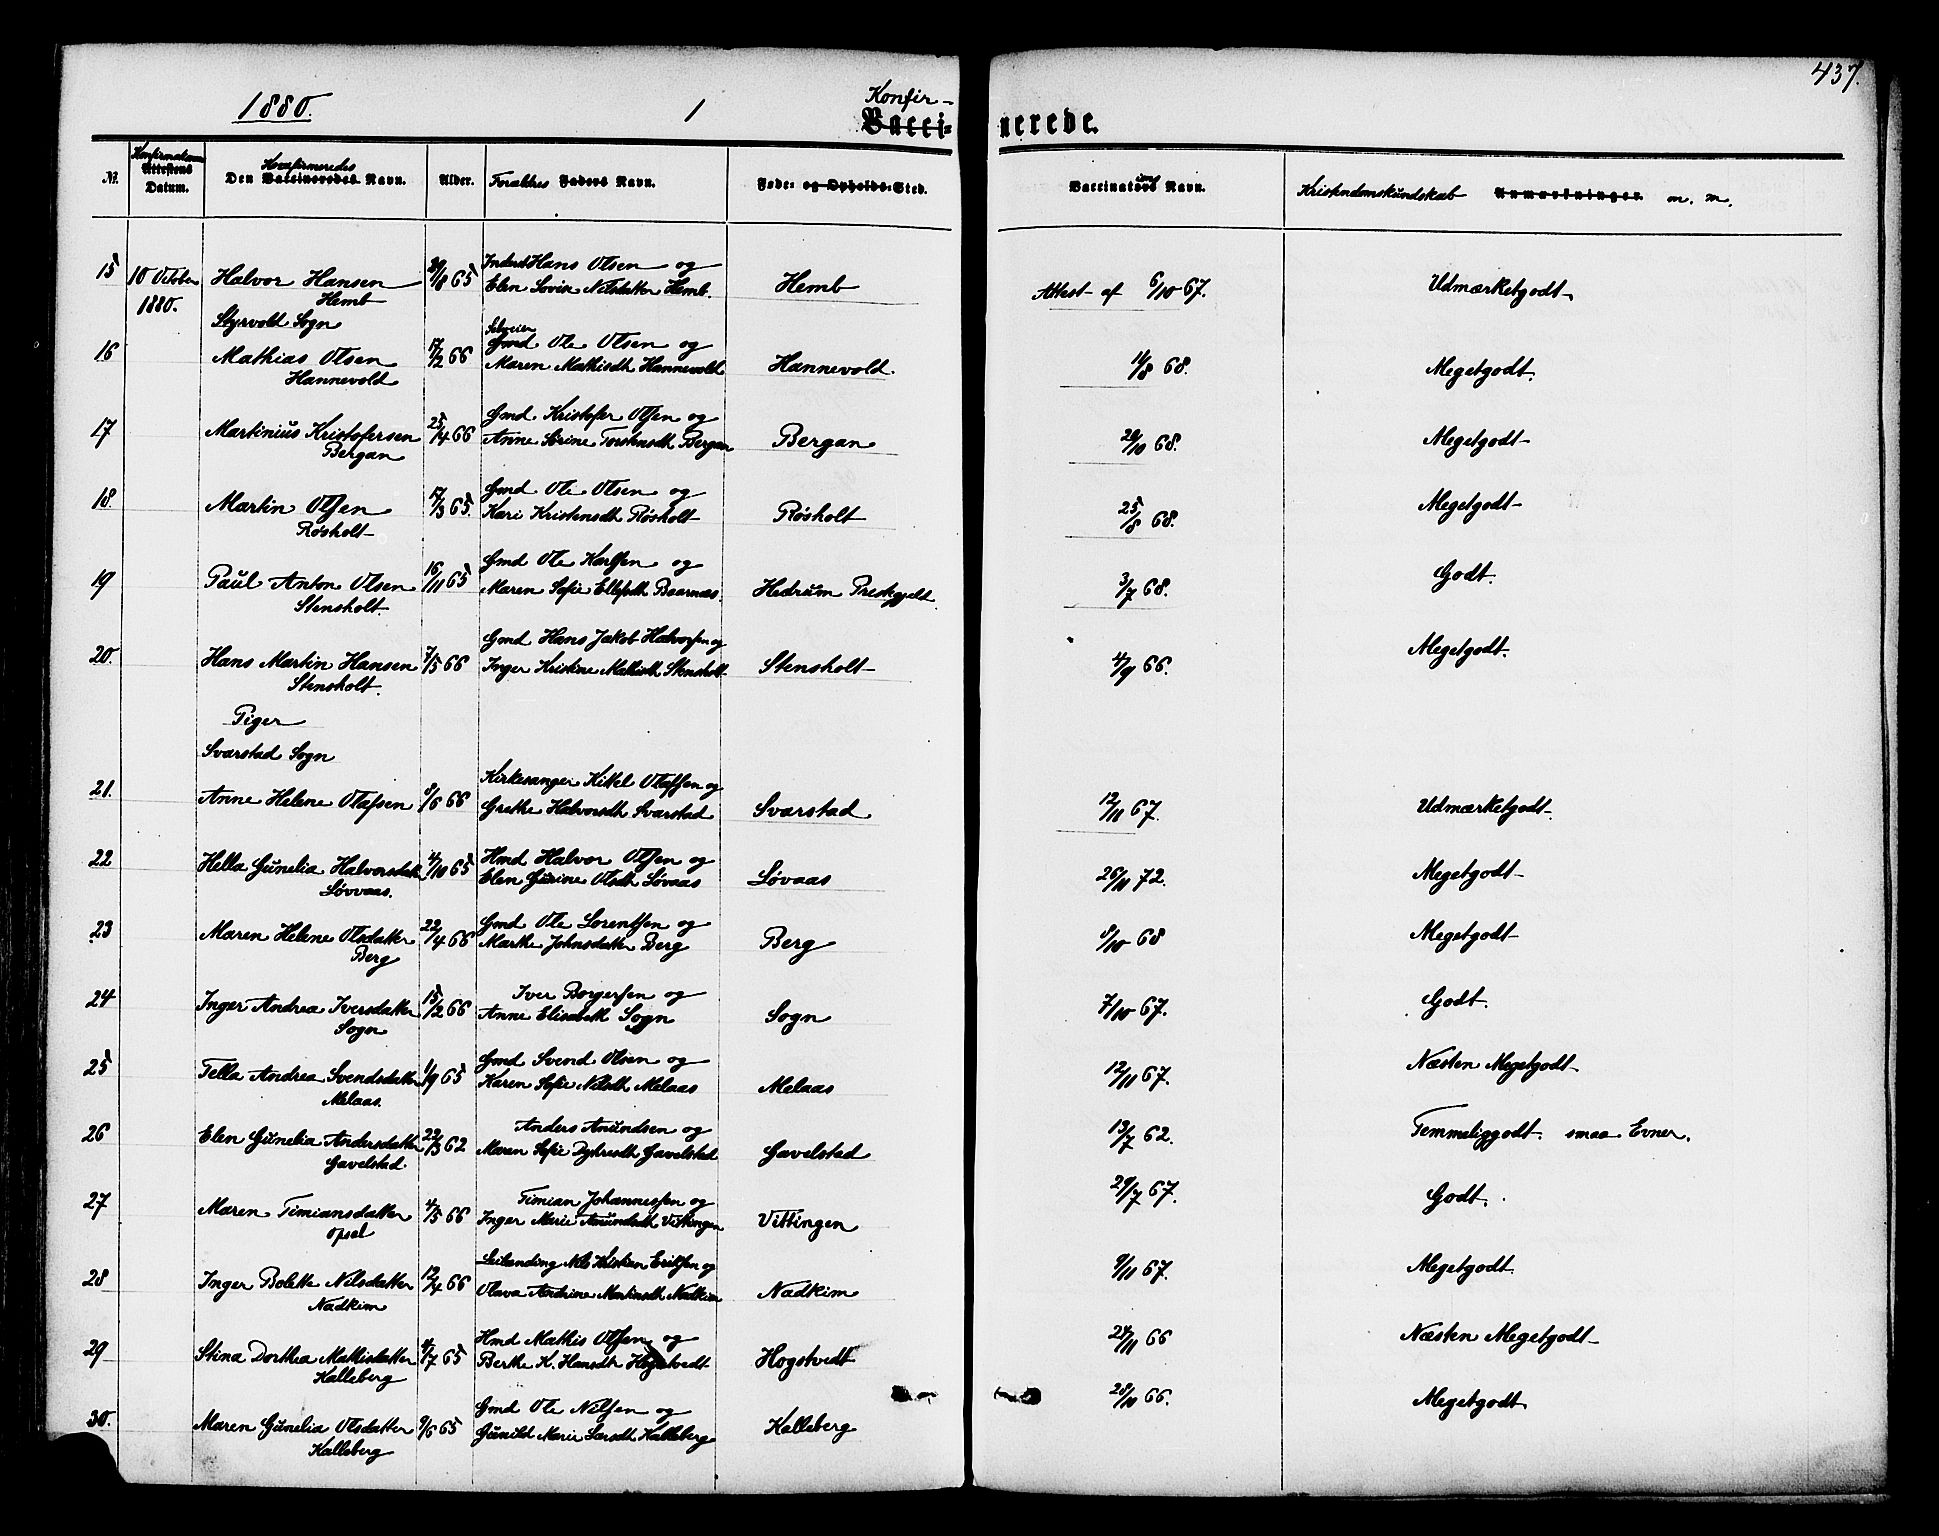 437.
1880.
1
Konfir-
Vaccinerede.
Nr.
Konfirmations
Attestens
Datum.
Konfirmeredes
Den Vaccineredes Navn.
Alder.
Forældres Faders Navn.
Føde- og Opholds-Sted.
Vaccinations Navn.
Kristendomskundskab Anmærkninger m. m.
15 10 Oktober Halvor Hansen 29/8 65 Inderst Hans Olsen og
1880. Hemb Elen Lovise Nilsdatter Hemb. Hemb Attest af 6/10 67. Udmærketgodt
Styrvold Sogn
16 Mathias Olsen 17/2 66 Selveier
Gmd Ole Olsen og
Hannevold Maren Mathisdt Hannevold Hannevold. 14/8 68. Megetgodt.
17 Martinius Kristofersen 25/4 66 Gmd Kristofer Olsen og
Bergan Anne Sørine Torstensdt Bergan Bergan 20/10 68. Megetgodt
18. Martin Olsen 17/3 65. Gmd Ole Olsen og
Røsholt Kari Kristensdt Røsholt Røsholt 25/8 68. Megetgodt
19 Paul Anton Olsen 16/11 65 Gmd Ole Karlsen og
Stensholt. Maren Sofie Ellefsdt Baarnæs. Hedrum Prestgjelt. 3/7 68. Godt.
20. Hans Martin Hansen 7/5 66 Gmd Hans Jakob Halvorsen og
Stensholt. Inger Kristine Mathisdt Stensholt Stensholt 4/9 66. Megetgodt.
Piger
Svarstad Sogn
21. Anne Helene Olafsen 8/6 66 Kirkesanger Kittel Olafsen og
Grethe Halvorsdt Svarstad Svarstad 12/11 67. Udmærketgodt.
22 Hella Gunelia Halvorsdatt 4/10 65 Hmd Halvor Olsen og
Løvaas. Elen Gurine Olsdt Løvaas Løvaas 26/11 72. Megetgodt
23 Maren Helene Olsdatter 22/4 66 Gmd Ole Lorentsen og
Berg Marthe Johnsdatter Berg Berg 8/10 68 Megetgodt
24 Inger Andrea Iversdatter 15/2 66 Iver Borgersen og
Sogn Anne Elisabeth Sogn Sogn 7/10 67. Godt.
25 Tella Andrea Svendsdatter 1/9 65 Gmd Svend Olsen og
Melaas. Karen Sofie Nilsdt Melaas Melaas 12/11 67. Næsten Megetgodt
26 Elen Gunelia Andersdatter 22/3 62 Anders Anundsen og
Gavelstad. Maren Sofie Dyhresdt Gavelstad Gavelstad 13/7 62. Temmeliggodt. smaa Evner.
27 Maren Timiansdatter 4/5 66 Timian Johannessen og
Opsal Inger Marie Amundsdt Vittingen Vittingen 29/7 67. Godt.
28 Inger Bolette Nilsdatter 12/4 66 Leilending Nils Kristian Eriksen og
Nadkim Olava Andrine Martinsdt Nadkim Nadkim 9/11 67. Megetgodt.
29 Stina Dorthea Mathisdatter 4/7 65 Hmd Mathis Olsen og
Kalleberg Berthe K. Hansdt Hogstvedt Hogstvedt 24/11 66 Næsten Megetgodt
30. Maren Gunelia Olsdatter 9/6 65 Gmd Ole Nilsen og
Kalleberg Gunild Marie Larsdt Kalleberg Kalleberg 28/10 66. Megetgodt